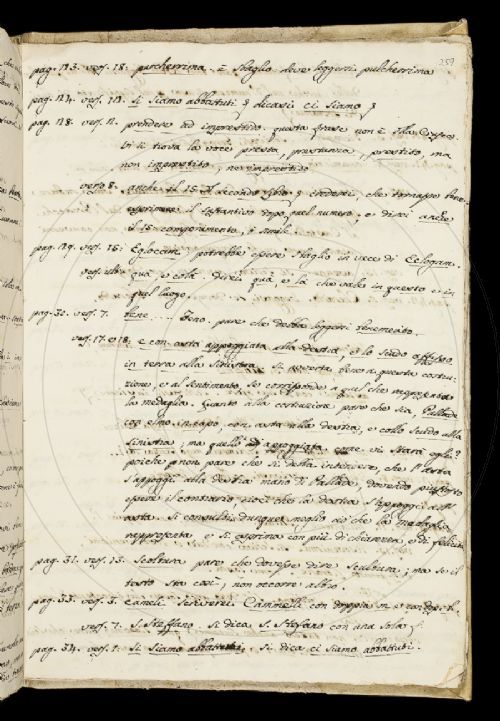 259
pag. 123. vers. 18. pircherrina. È sbaglio deve leggersi pulcherrima
pag. 124. vers. 10. Si siamo abbattuti § dicasi ci siamo §
pag. 128. vers. 12. prendere ad imprestido. questa frase non è
bi si trova la voce presta, prestanza, prestito, ma
non imprestito, ne imprestido
verso 8. anche il 15. § crederei, che tornasse bene
esprimere il sostantivo dopo quel numero. e direi anche
il 15 componimento, o simile.
pag. 129. vers. 18. potrebbe essere sbaglio in vece di Eclogam.
vers. ult. quà, e colà. direi quà e là che vale in questo e in
quel luogo.
pag. 31. vers. 7. tene .... Teno. pare che debba leggersi tenemento
vers. 17 e 18. e con asta appoggiata alla destra, e lo scudo
in terra alla sinistra. si avverta bene a questa costru-
zione, e al sentimento se corrisponde a quel che rappresenta
la medaglia. Quanto alla costruzione pare che sia, Pallade
con elmo in capo, con asta alla destra, e collo scudo alla
sinistra, ma quello appoggiata come vi starà egli?
poiche non pare che si debba intendere, che l'asta
s'appoggi alla destra mano di Pallade, dovendo piuttosto
essere il contrario, cioè che la destra s'appoggi all'
asta. Si consulti dunque meglio ciò che la medaglia
rappresenta e si esprima con più di chiarezza e di felicità
pag. 31. vers. 13. Scoltura pare che dovesse dire Scultura; ma se il
testo sta così, non occorre altro.
pag. 33. vers. 3. Cameli. Scriverei Cammelli con doppia m e con dop. l.
vers. 7. S. Steffano. si dica S. Stefano con una sola f.
pag. 34. vers. 1. Si siamo abbattuti. si dica ci siamo abbattuti.